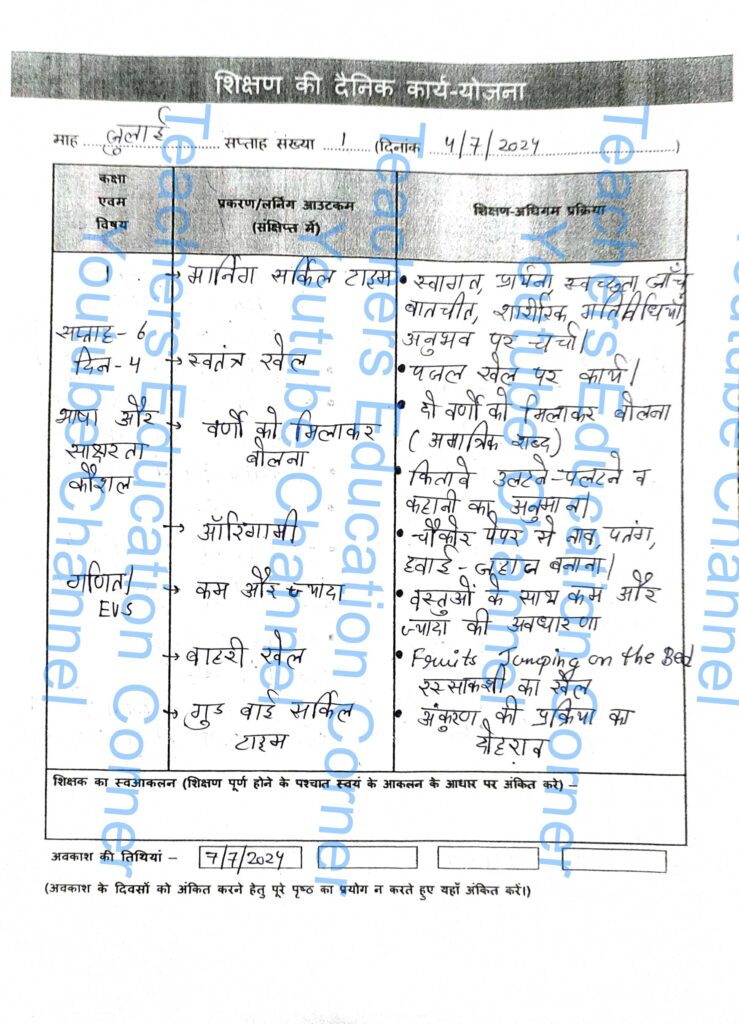 शिक्षण की दैनिक कार्य-योजना
माह जुलाई सप्ताह संख्या 1 (दिनाक 4/7/2024)
कक्षा एवम विषय
प्रकरण/लर्निग आउटकम (संक्षिप्त में)
शिक्षण-अधिगम प्रक्रिया
1
सप्ताह-6
दिन-4
भाषा और
साक्षरता
कौशल
गणित/
EVS
→ मार्निग सर्किल टाइम
→ स्वतंत्र खेल
→ वर्णो को मिलाकर
बोलना
→ ऑरिगामी
→ कम और ज्यादा
→ बाहरी खेल
→ गुड बाई सर्किल
टाइम
• स्वागत, प्रार्थना, स्वच्छता जाँच
बातचीत, शारीरिक गतिविधियाँ,
अनुभव पर चर्चा।
• पजल खेल पर कार्य।
• दो वर्णो को मिलाकर बोलना
(अमात्रिक शब्द)
• किताबे उलटने-पलटने व
कहानी का अनुमान।
• चौकोर पेपर से नाव, पतंग,
हवाई-जहाज बनाना।
• वस्तुओं के साथ कम और
ज्यादा की अवधारणा
• Fruits Jumping on the Bed
रस्साकशी का खेल
• अंकुरण की प्रक्रिया का
दोहराव
शिक्षक का स्वआकलन (शिक्षण पूर्ण होने के पश्चात स्वयं के आकलन के आधार पर अंकित करे) –
अवकाश की तिथियां – 7/7/2024
(अवकाश के दिवसों को अंकित करने हेतु पूरे पृष्ठ का प्रयोग न करते हुए यहाँ अंकित करें।)
Teachers Education Corner
Youtube Channel
Teachers Education Corner
Youtube Channel